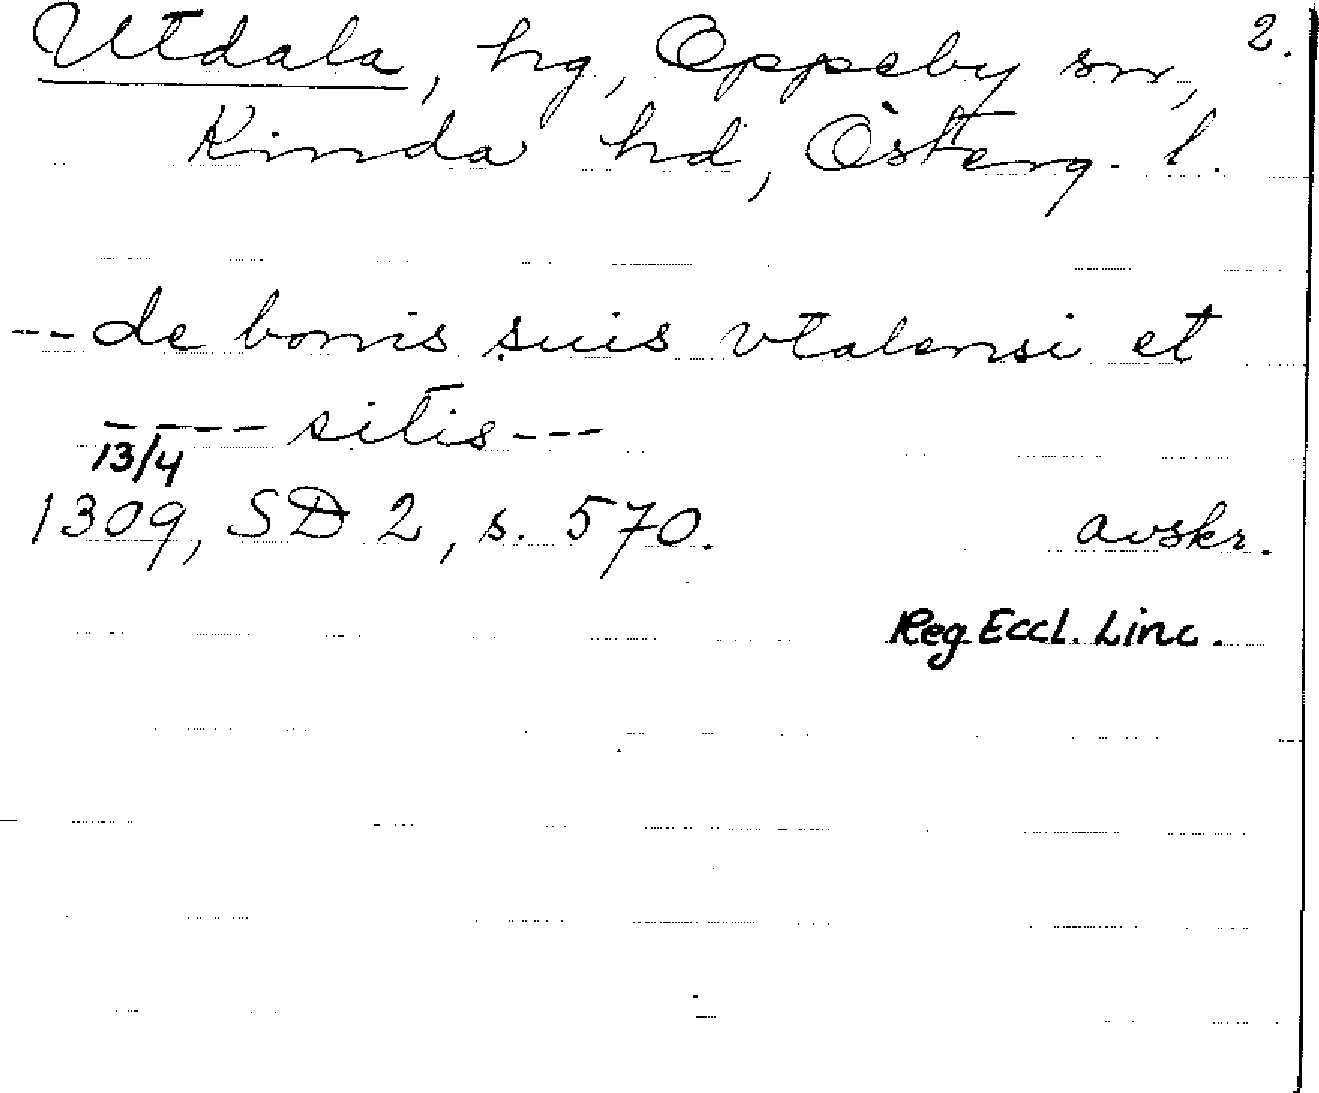 Utdala, hg, Oppeby sn, 2.
Kinda hd, Österg. l.
-- de bonis suis vtalensi et
---- sitis ---
13/4
1309, SD 2, s. 570. avskr.
Reg Eccl. Linc.